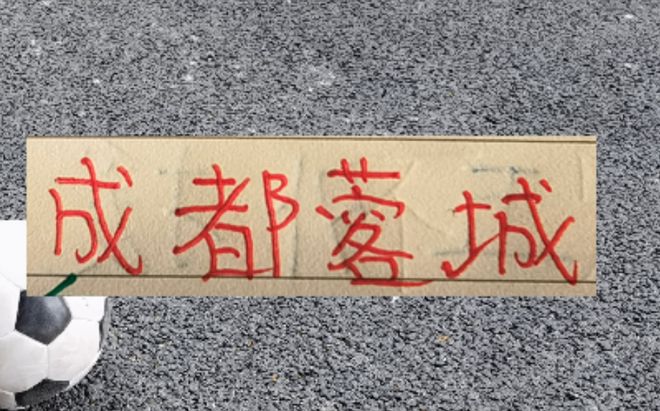 成都蓉城